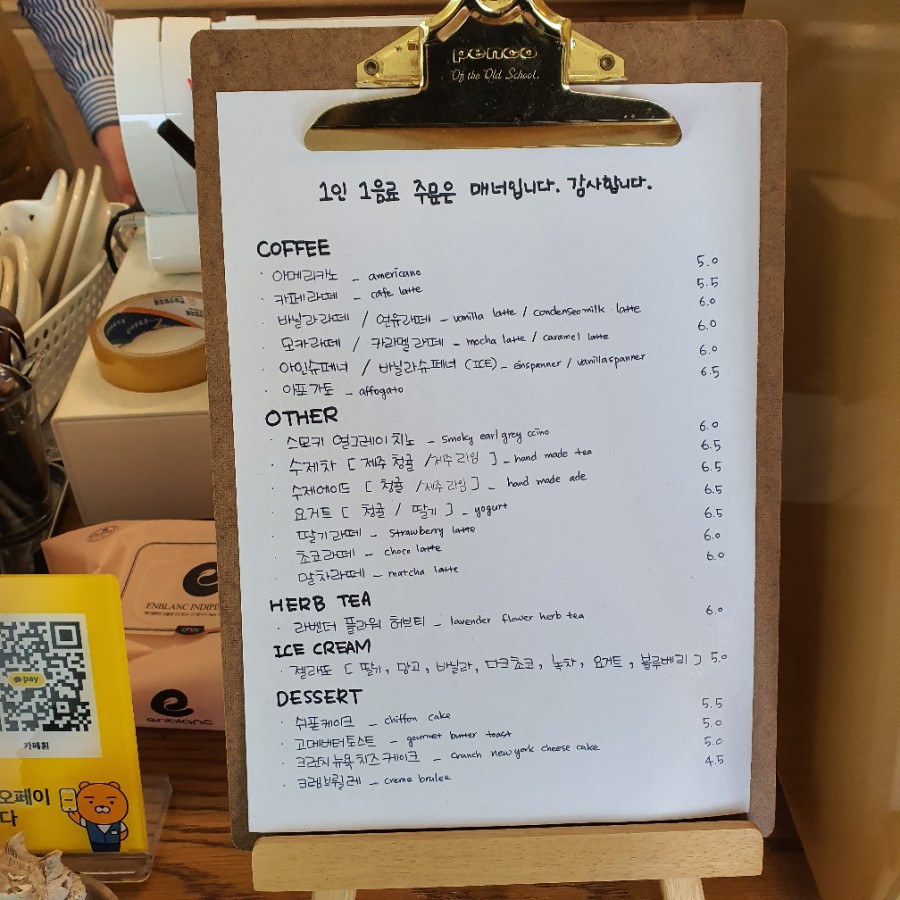 penco
Of the Old School.
1인 1음료 주문은 매너입니다. 감사합니다.
COFFEE
· 아메리카노 - americano 5.0
· 카페라떼 - caffe latte 5.5
· 바닐라라떼 / 연유라떼 - vanilla latte / condensedmilk latte 6.0
· 모카라떼 / 카라멜라떼 - mocha latte / caramel latte 6.0
· 아인슈페너 / 바닐라슈페너 (ICE) - einspanner / vanillaspanner 6.0
· 아포가토 - affogato 6.5
OTHER
· 스모키 얼그레이치노 - smoky earl grey ccino 6.0
· 수제차 [ 제주청귤 / 제주라임 ] - hand made tea 6.5
· 수제에이드 [ 청귤 / 제주라임 ] - hand made ade 6.5
· 요거트 [ 청귤 / 딸기 ] - yogurt 6.5
· 딸기라떼 - strawberry latte 6.5
· 초코라떼 - choco latte 6.0
· 말차라떼 - matcha latte 6.0
HERB TEA
· 라벤더 플라워 허브티 - lavender flower herb tea 6.0
ICE CREAM
· 젤라또 [ 딸기, 망고, 바닐라, 다크초코, 녹차, 요거트, 블루베리 ] 5.0
DESSERT
· 쉬폰케이크 - chiffon cake 5.5
· 고메버터토스트 - gourmet butter toast 5.0
· 크런치뉴욕치즈케이크 - crunch newyork cheese cake 5.0
· 크렘브륄레 - creme brulee 4.5
e
ENBLANC INDIPI
OPEN
e
enblanc
pay
카페휜
오페이
다